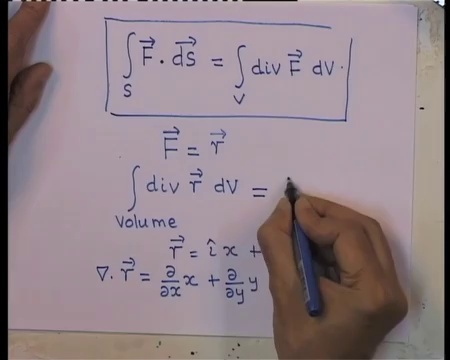 ∫_S F⃗ · ds⃗ = ∫_V div F⃗ dV.
F⃗ = r⃗
∫_Volume div r⃗ dV =
r⃗ = î x +
∇. r⃗ = ∂/∂x x + ∂/∂y y